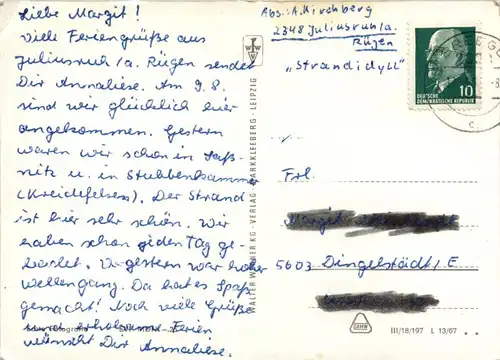 Liebe Margit!
Viele Feriengrüße aus
Juliusruh/a. Rügen sendet
Dir Annaliese. Am 9.8.
sind wir glücklich hier
angekommen. Gestern
waren wir schon in Saß-
nitz u. in Stubbenkammer
(Kreidefelsen). Der Strand
ist hier sehr schön. Wir
haben schon jeden Tag ge-
badet. Vorgestern war hoher
Wellengang. Da hat es Spaß
gemacht! Noch viele Grüße
und erholsame Ferien
wünscht Dir Annaliese.
Abs.: A. Kirchberg
2348 Juliusruh/a.
Rügen
"Strandidyll"
10
DEUTSCHE
DEMOKRATISCHE REPUBLIK
WALTER WAGNER KG · VERLAG · MARKKLEEBERG · LEIPZIG
Frl.
5603 Dingelstädt/E
III/18/197 L 13/67